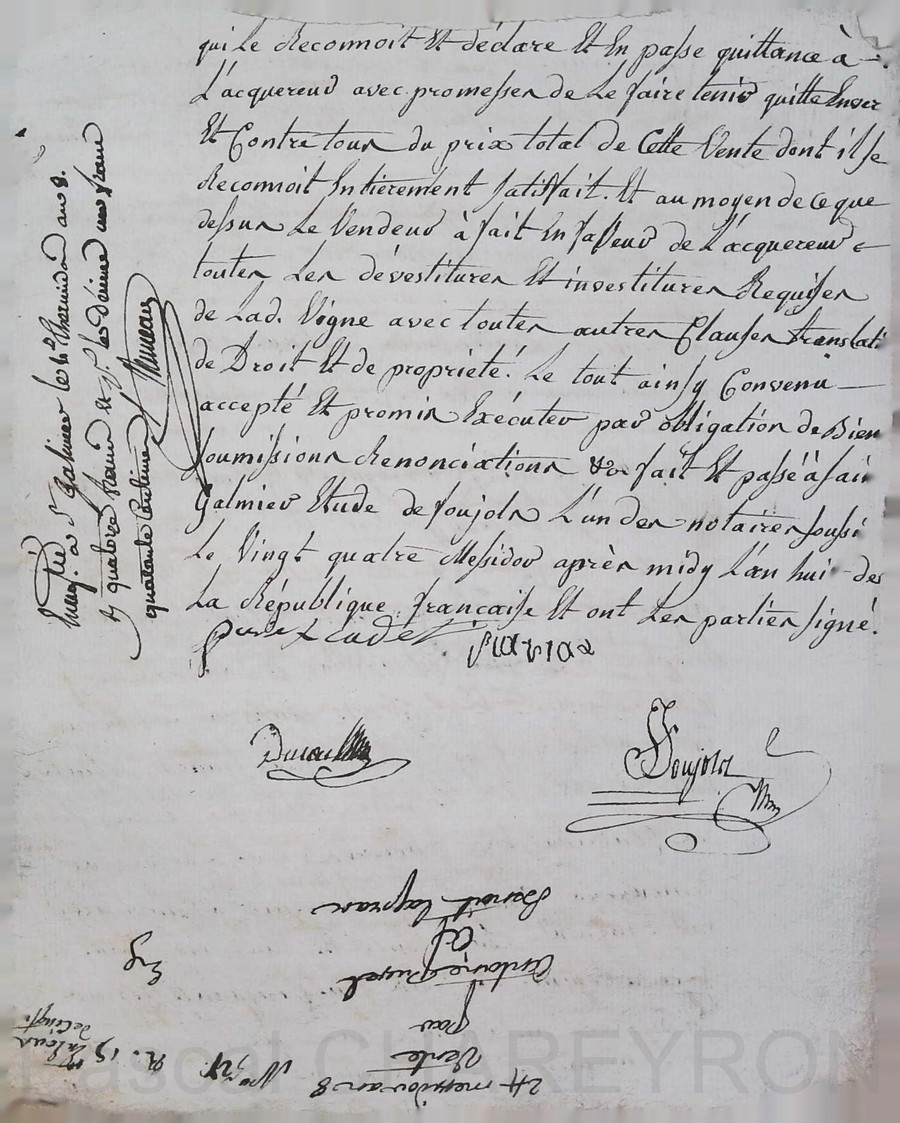 qui Le Reconnoit Et déclare Et En passe quittance à
L'acquereur avec promesses de Le faire tenir quitte Enver
Et Contre tous du prix total de Cette Vente dont il se
Reconnoit Entièrement satisfait. Et au moyen de ce que
dessus Le Vendeur à fait En faveur de L'acquereur
toutes Les dévestitures Et investitures Requises
de Lad. Vigne avec toutes autres Clauses translati
de Droit Et de propriété. Le tout ainsy Convenu
accepté Et promis Exécuter par obligation de Bien
soumissions Renonciations &a fait Et passé à sain
Galmier Etude de Soujols L'un des notaires soussi
Le Vingt quatre Messidor après midy L'an huit des
La République française Et ont Les parties signé.
Soujols
à St. Galmier le Thermidor an 8.
quatorze
quarante Centimes
24 messidor an 8
Vente
par
Antoine
à
Benoit
No.
Eng